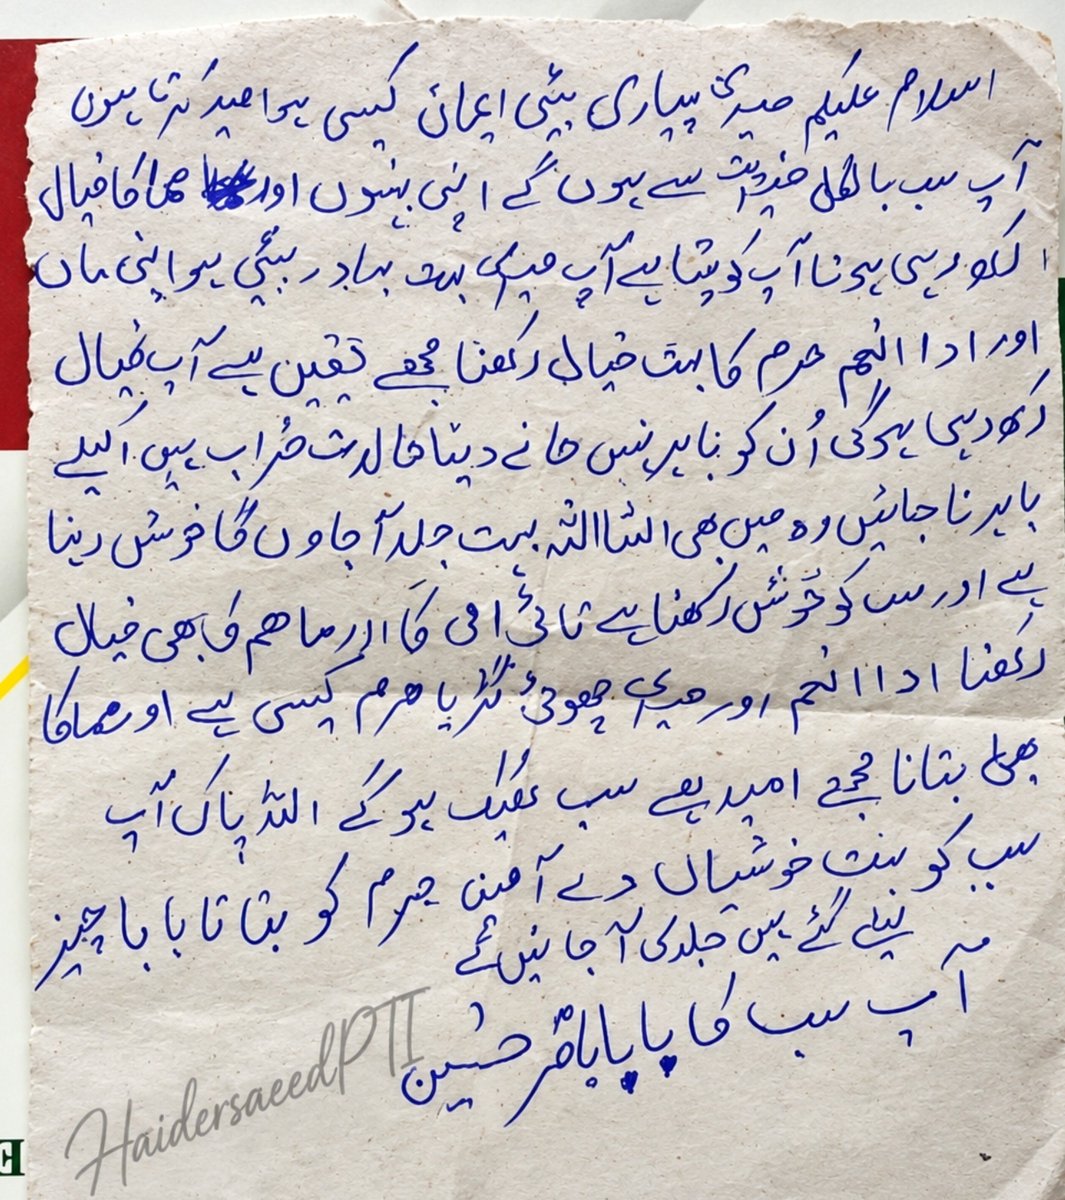 اسلام علیکم میری پیاری بیٹی ایمان کیسی ہو امید کرتا ہوں
آپ سب بالکل خیریت سے ہوں گے اپنی بہنوں اور مما کا خیال
رکھ رہی ہو نا آپ کو پتا ہے آپ میری بہت بہادر بیٹی ہو اپنی ماں
اور ادا انعم حرم کا بہت خیال رکھنا مجھے یقین ہے آپ خیال
رکھ رہی ہو گی اُن کو باہر نہیں جانے دینا حالات خراب ہیں اکیلے
باہر نا جائیں وہ میں بھی انشااللہ بہت جلد آ جاوں گا خوش رہنا
ہے اور سب کو خوش رکھنا ہے تائی امی کا اور ماھم کا بھی خیال
رکھنا ادا انعم اور میری چھوٹی گڑیا حرم کیسی ہے اور مما کا
بھی بتانا مجھے امید ہے سب ٹھیک ہو گے اللہ پاک آپ
سب کو بہت خوشیاں دے آمین حرم کو بتانا بابا چیز
لینے گئے ہیں جلدی آ جائیں گے
آپ سب کا پاپا حسین
HaidersaeedPTI
E